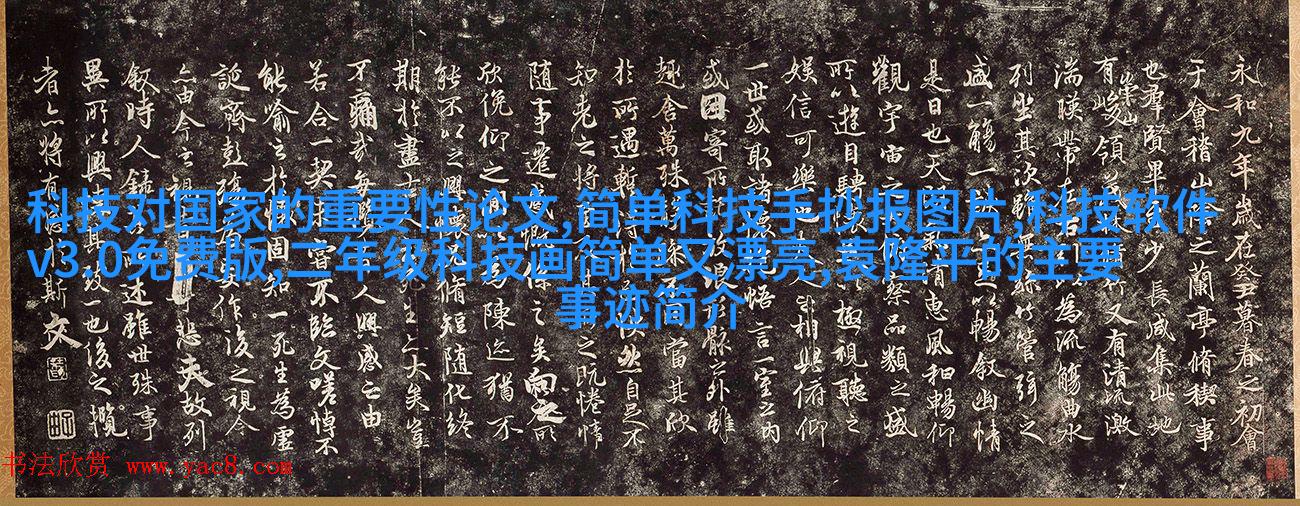 科技对国家的重要性论文,简单科技手抄报图片,科技软件
v3.0免费版,二年级科技画简单又漂亮,袁隆平的主要
事迹简介
永和九年歲在癸丑暮春之初會
于會稽山之蘭亭脩稧事
也群賢畢少長咸集此地
有崇山峻領竹又有清流激
湍暎帶左右以為流觴曲水
列坐其次雖無絲竹管弦之
盛一觴一足以暢敘幽情
是日也天氣惠風和暢仰
觀宇宙之察品類之盛
所以遊目騁極視聽之
娛信可樂也人相與俯仰
一世或取諸悟言一室之內
或因寄所放浪形骸外雖
趣舍萬殊當其欣
於所遇暫得快然自足不
知老之將之既惓情
隨事遷感慨係之矣向之所
欣俛仰之間為陳迹猶不
能不以之興懷脩短隨化終
期於盡古死生亦大矣豈
不痛哉每人興感之由
若合一契嘗不臨文嗟悼不
能喻之於懷固知一死生為虛
誕齊彭殤作後之視今
亦由今之視悲夫故列
敘時人錄述雖世殊事
異所以興其致一也後之攬
者亦將有於斯文
书法欣赏 www.yac8.com